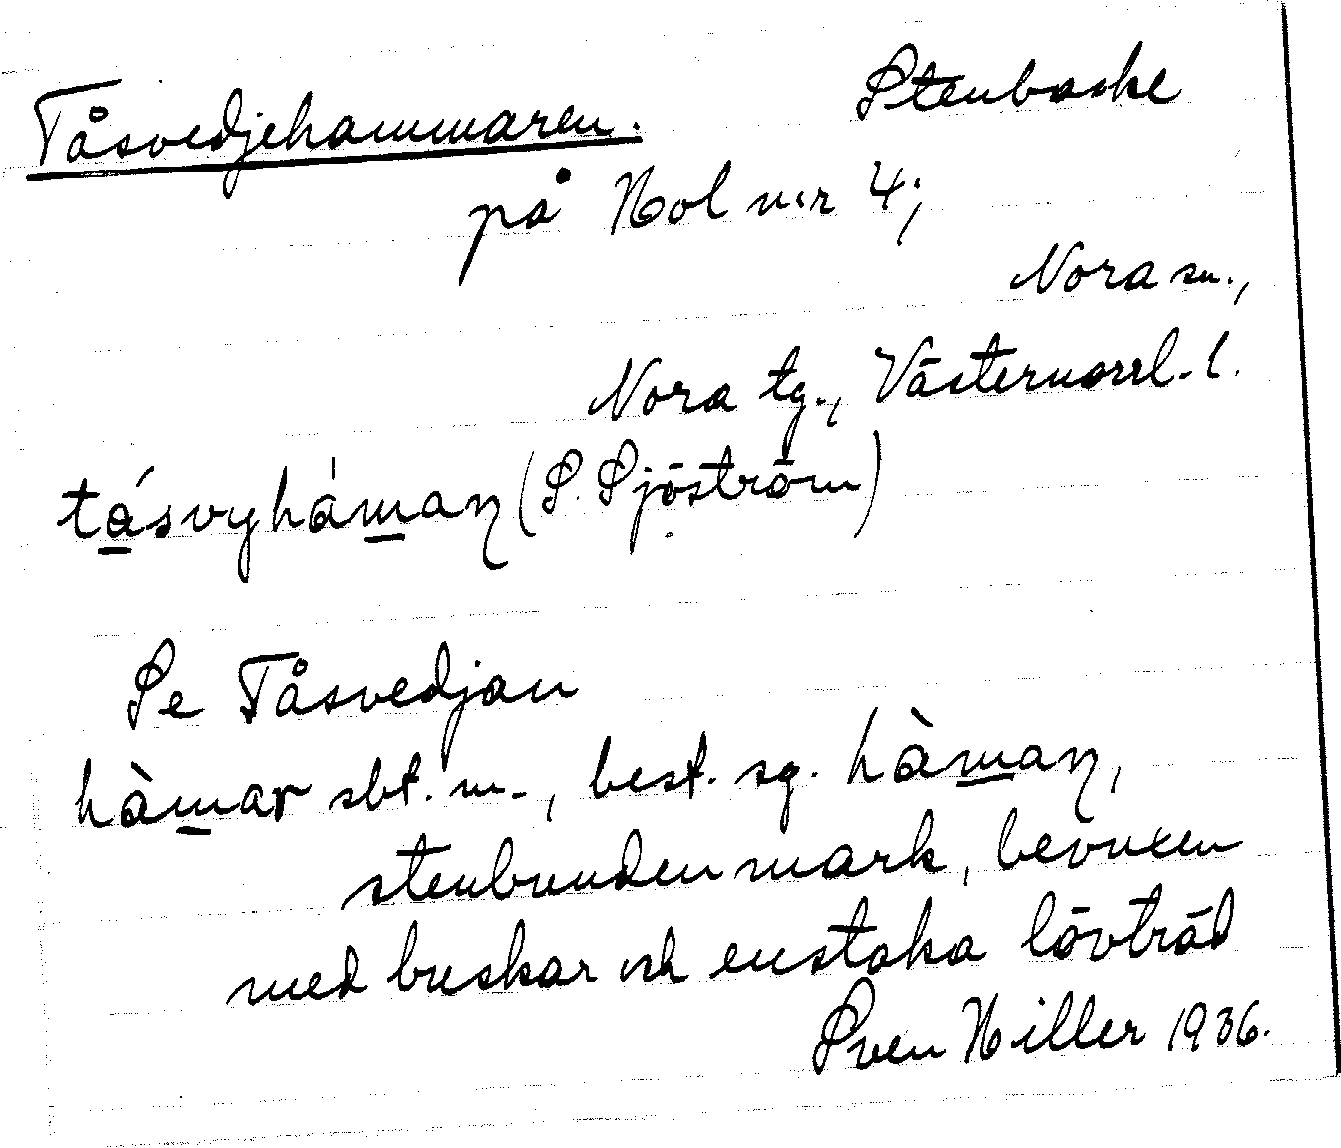 Tåsvedjehammaren. Stenbacke
på Hol n:r 4;
Nora sn.,
Nora tg., Västernorrl. l.
tásvyhámaɳ (S. Sjöström)
Se Tåsvedjan
hàmar sbt. m., best. sg. hàmaɳ,
stenbunden mark, bevuxen
med buskar och enstaka lövträd
Sven Hiller 1936.